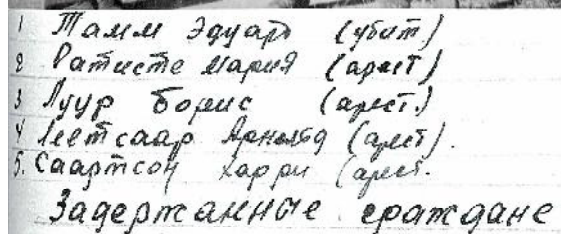 1 Тамм Эдуард (убит.)
2 Ратисте Мария (арест)
3 Луур Борис (арест.)
4 Леетсаар Арнольд (арест).
5. Саартсон Харри (арест.
Задержанные граждане